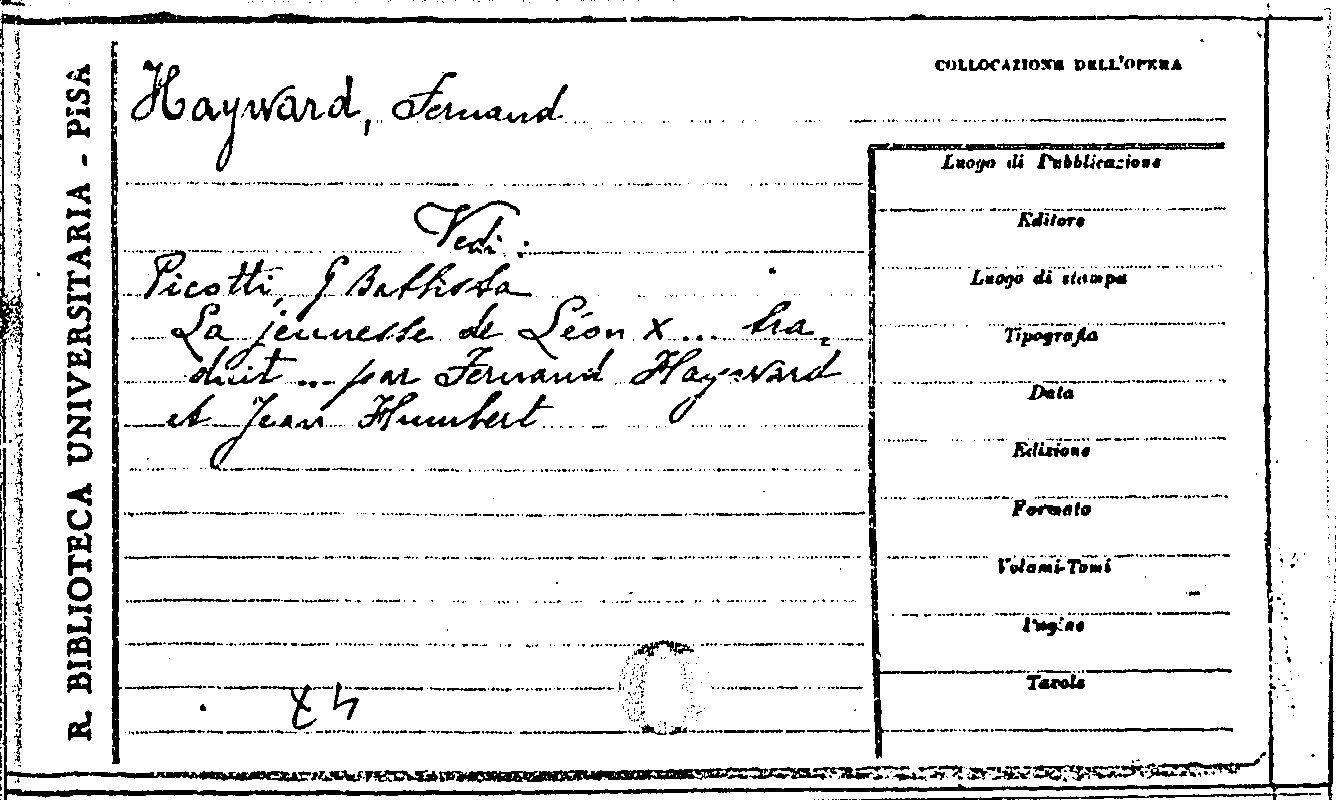 R. BIBLIOTECA UNIVERSITARIA - PISA
Hayward, Fernand
Vedi:
Picotti, G Battista
La jeunesse de Léon X... tra-
duit ... par Fernand Hayward
et Jean Humbert
COLLOCAZIONE DELL'OPERA
Luogo di Pubblicazione
Editore
Luogo di stampa
Tipografia
Data
Edizione
Formato
Volumi-Tomi
Pagine
Tavole